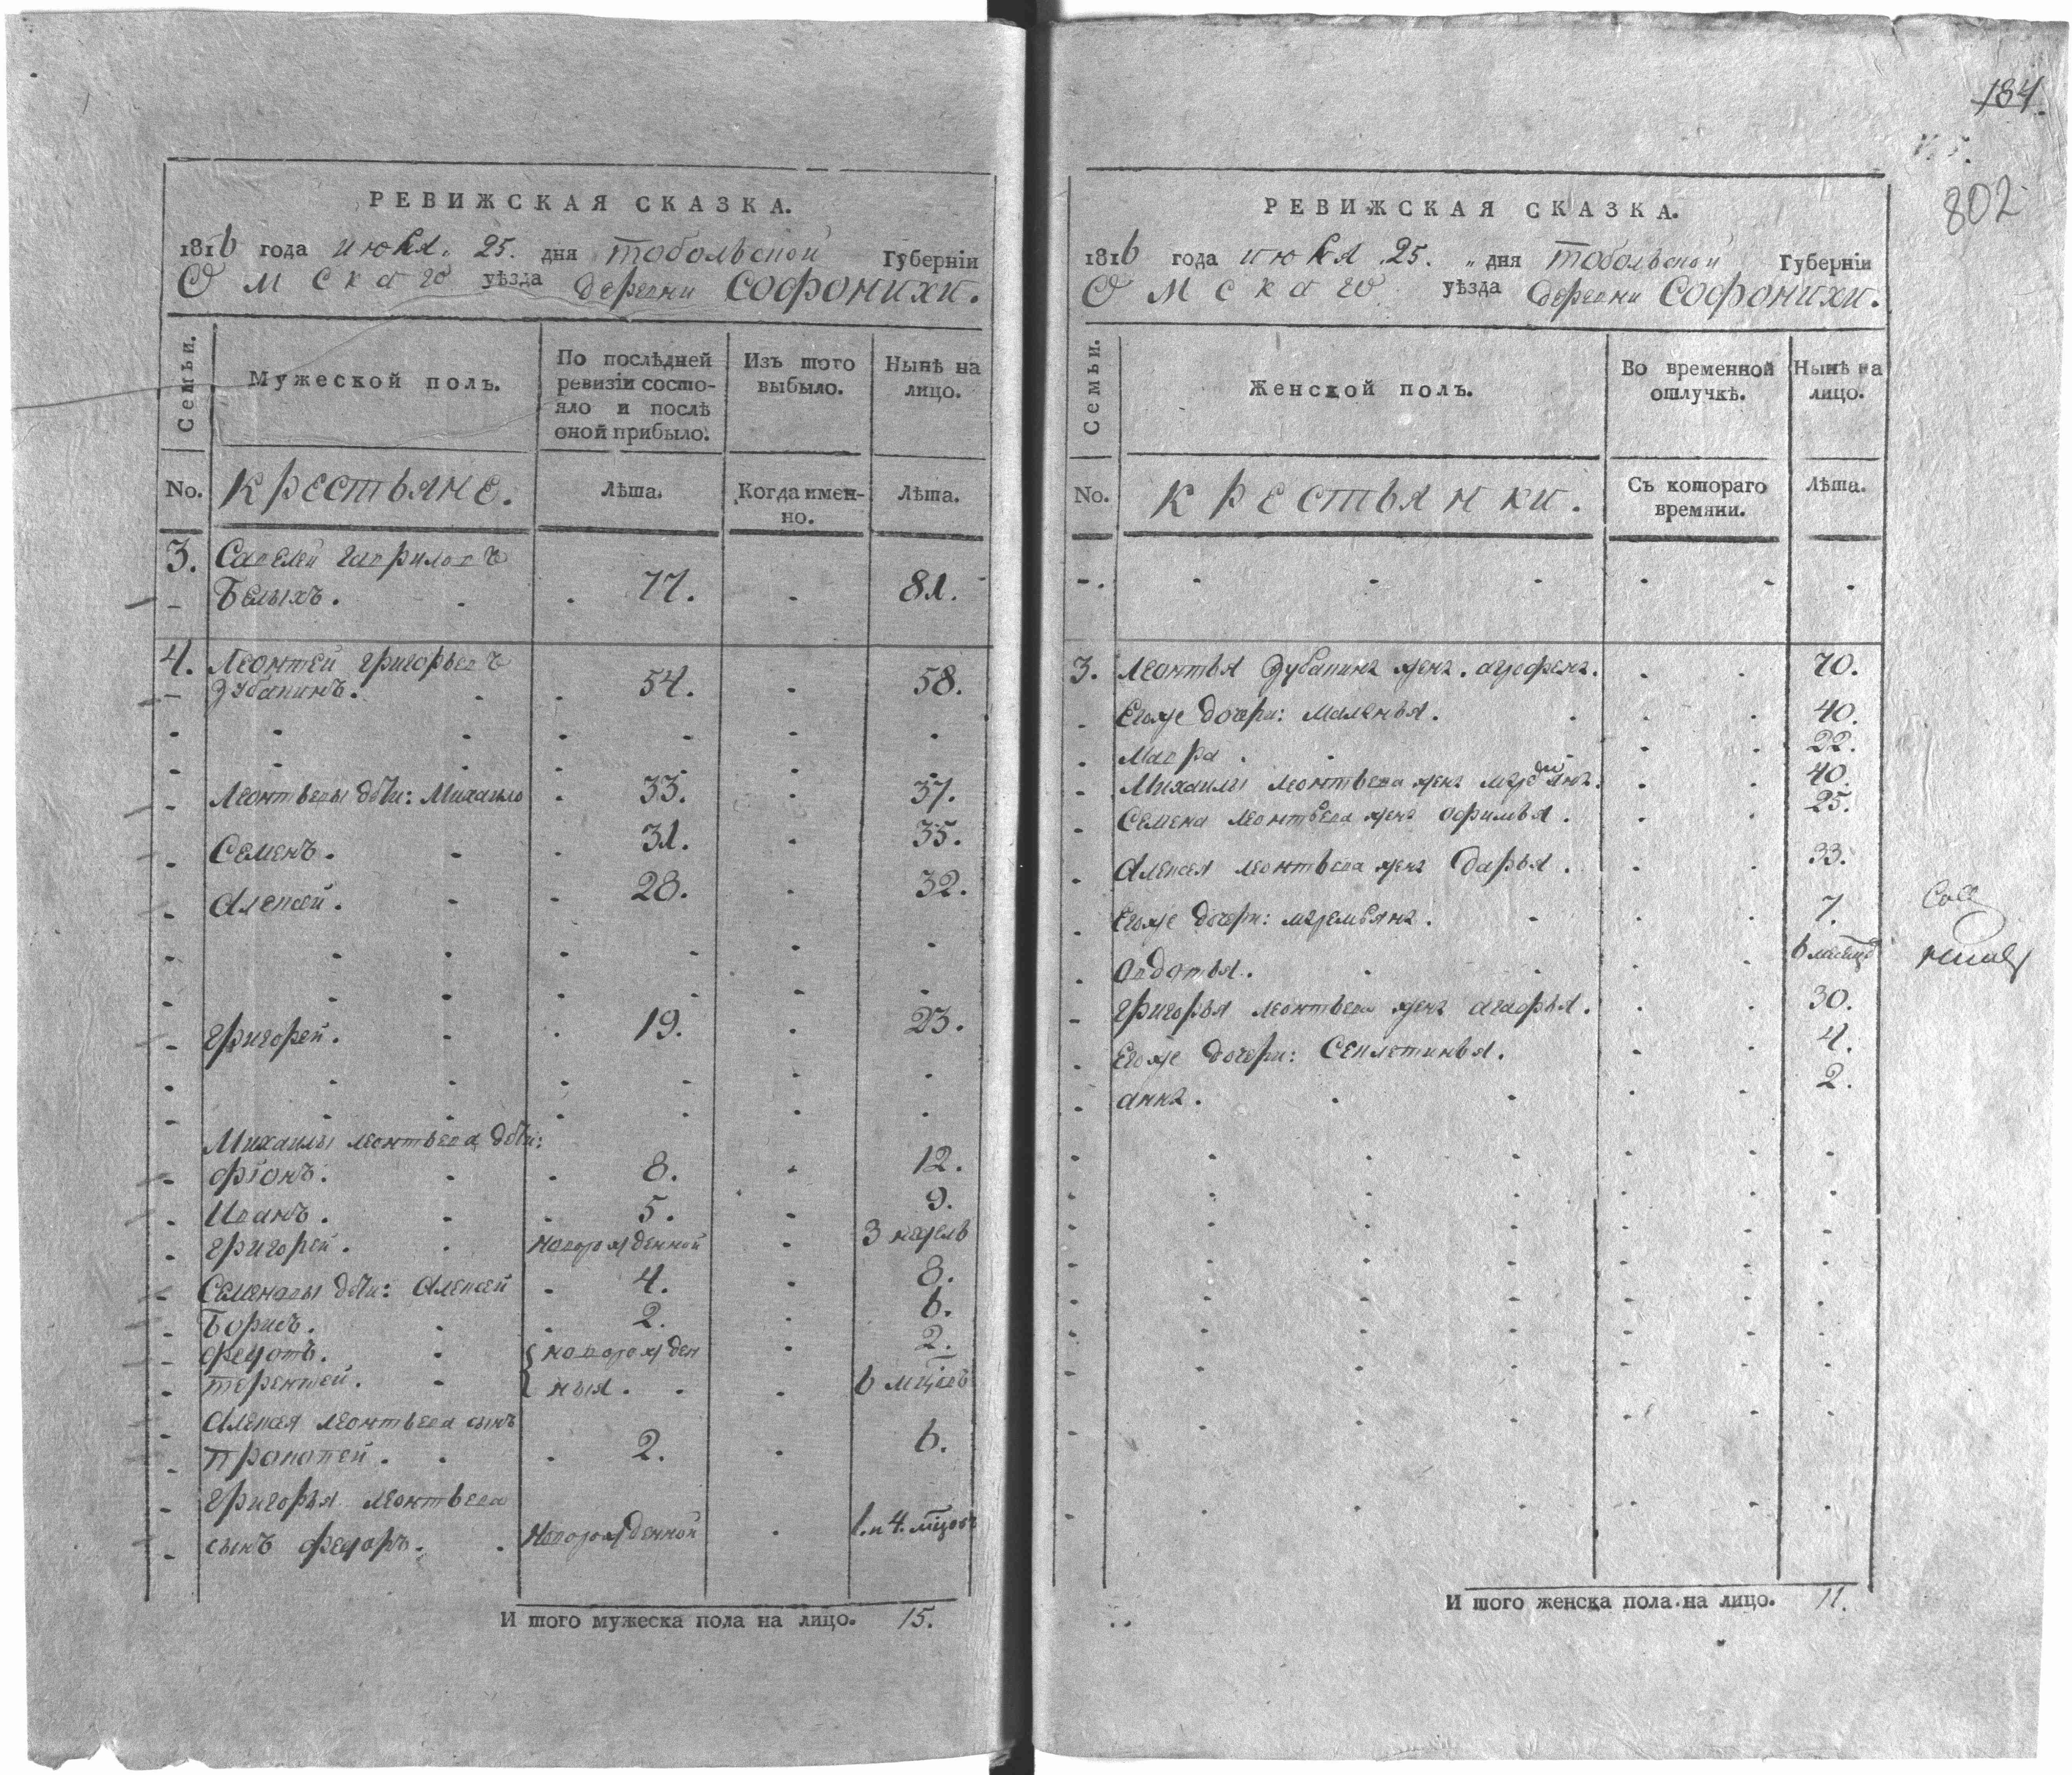 РЕВИЖСКАЯ СКАЗКА.
1816 года июня 25. дня тобольской Губерніи
Омскаго уѣзда деревни Софонихи.
Семьи.
Мужеской полъ.
По послѣдней ревизіи состояло и послѣ оной прибыло.
Изъ того выбыло.
Нынѣ на лицо.
No. крестьяне. Лѣта. Когда именно. Лѣта.
3. Савелей гавриловъ
Белыхъ. 77. 81.
4. Леонтей григорьевъ
Зубакинъ. 54. 58.
Леонтьевы дѣти: Михаило 33. 37.
Семенъ. 31. 35.
Алексей. 28. 32.
григорей. 19. 23.
Михаилы леонтьева дѣти:
фіонъ. 8. 12.
Иванъ. 5. 9.
григорей. новорожденной 3 недель
Семеновы дѣти: Алексей 4. 8.
Борисъ. 2. 6.
федотъ. новорожден 2.
терентей. ныя. 6 мцовъ
Алексея леонтьева сынъ
Прокопей. 2. 6.
григорья леонтьева
сынъ федоръ. Новорожденной 1. и 4. мцовъ
И того мужеска пола на лицо. 15.
184.
802
РЕВИЖСКАЯ СКАЗКА.
1816 года июня 25. дня тобольской Губерніи
Омскаго уѣзда деревни Софонихи.
Семьи.
Женской полъ.
Во временной отлучкѣ.
Нынѣ на лицо.
No. крестьянки. Съ котораго времяни. Лѣта.
3. Леонтья Зубакина жена. агрофена. 70.
Егоже дочери: Маланья. 40.
Мавра. 22.
Михаилы леонтьева жена 40.
Семена леонтьева жена офимья. 25.
Алексея леонтьева жена Дарья. 33.
Егоже дочери: маремьяна. 7.
Овдотья. 6 месяцов
григорья леонтьева жена агафья. 30.
Егоже дочери: Секлетинья. 4.
анна. 2.
И того женска пола на лицо. 11.